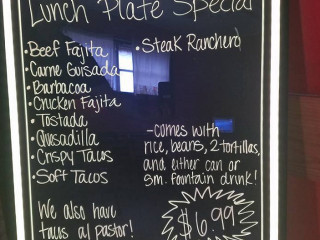 Lunch Plate Special
• Beef Fajita
• Carne Guisada
• Barbacoa
• Chicken Fajita
• Tostada
• Quesadilla
• Crispy Tacos
• Soft Tacos
• Steak Ranchero
-comes with
rice, beans, 2 tortillas,
and either can or
sm. fountain drink!
We also have
tacos al pastor!
$6.99